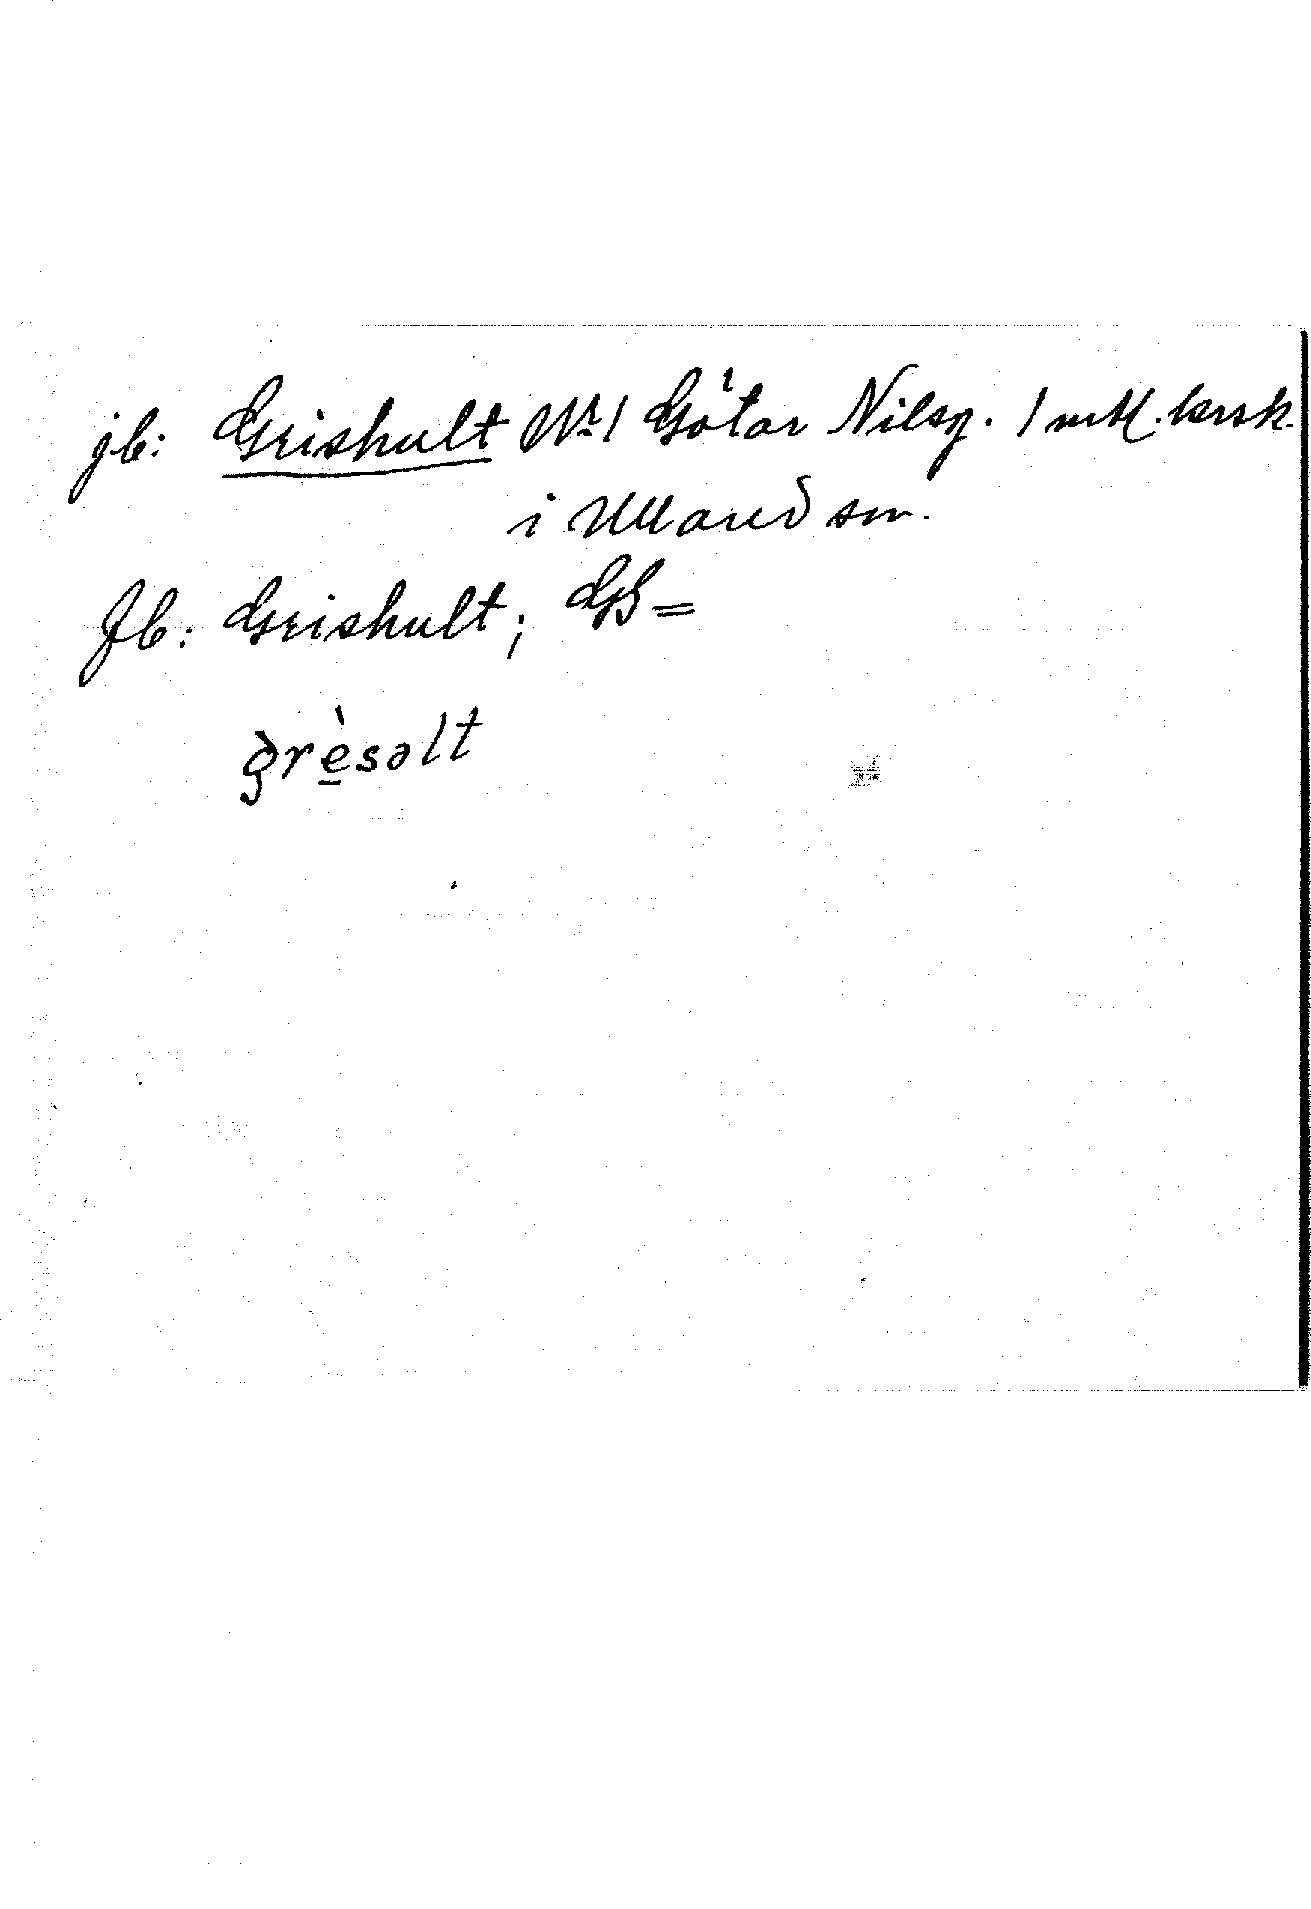 jb: Grishult Nr 1 Götar Nilsg. 1 mtl. krsk.
i Ullared sn.
Jb: Grishult; GB =
grèsəlt